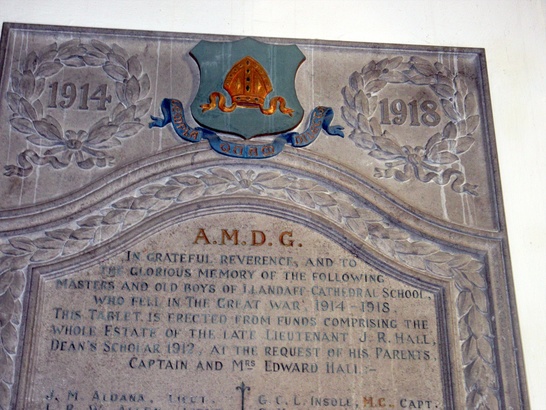 1914
1918
A.M.D.G.
IN GRATEFUL REVERENCE, AND TO
THE GLORIOUS MEMORY OF THE FOLLOWING
MASTERS AND OLD BOYS OF LLANDAFF CATHEDRAL SCHOOL,
WHO FELL IN THE GREAT WAR, 1914-1918.
THIS TABLET, IS ERECTED FROM FUNDS COMPRISING THE
WHOLE ESTATE OF THE LATE LIEUTENANT J. R. HALL,
DEAN'S SCHOLAR 1912, AT THE REQUEST OF HIS PARENTS,
CAPTAIN AND MRS EDWARD HALL:-
J. M. ALDANA, LIEUT.
G. C. L. INSOLE, M.C. CAPT.